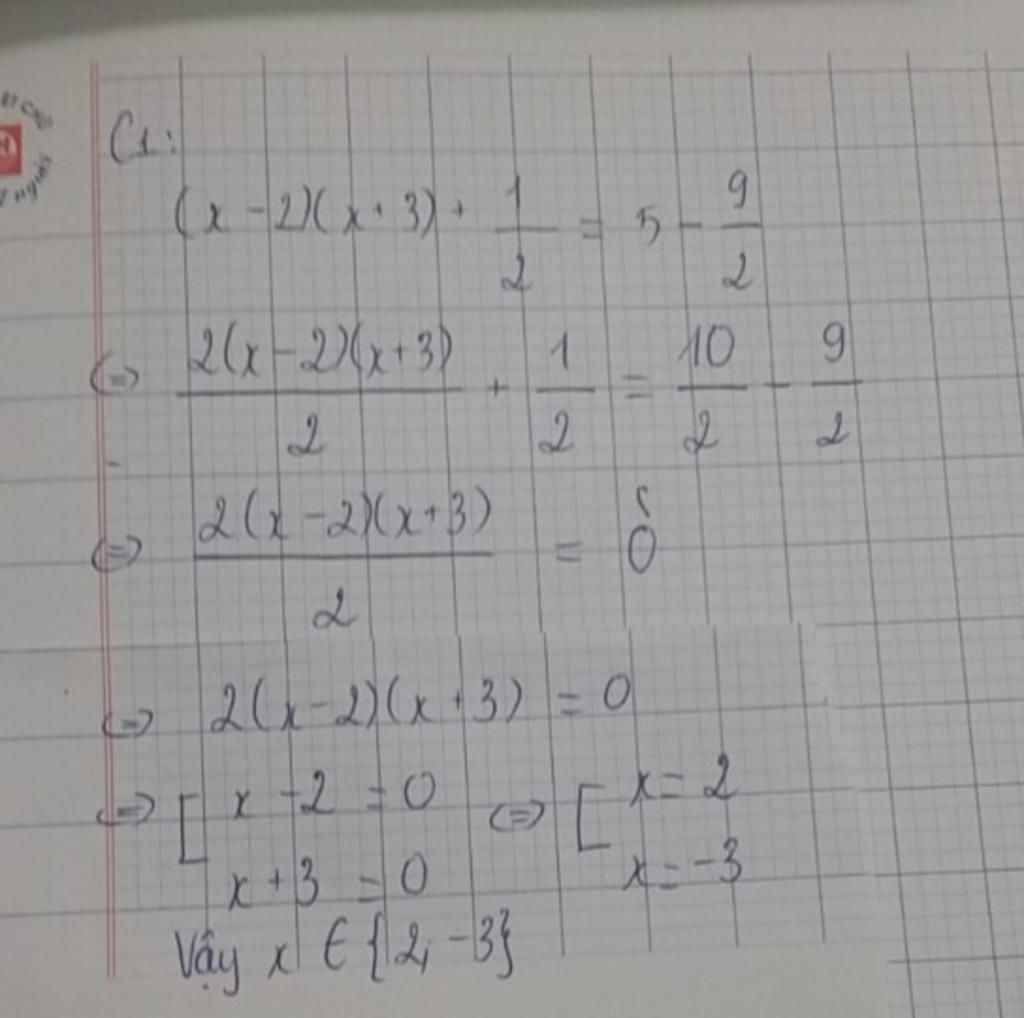 C1:
(x - 2)(x + 3) + 1/2 = 5 - 9/2
<=> 2(x - 2)(x + 3)/2 + 1/2 = 10/2 - 9/2
<=> 2(x - 2)(x + 3)/2 = 0
<=> 2(x - 2)(x + 3) = 0
<=> [ x - 2 = 0 <=> [ x = 2
x + 3 = 0 x = -3
Vậy x ∈ {2, -3}